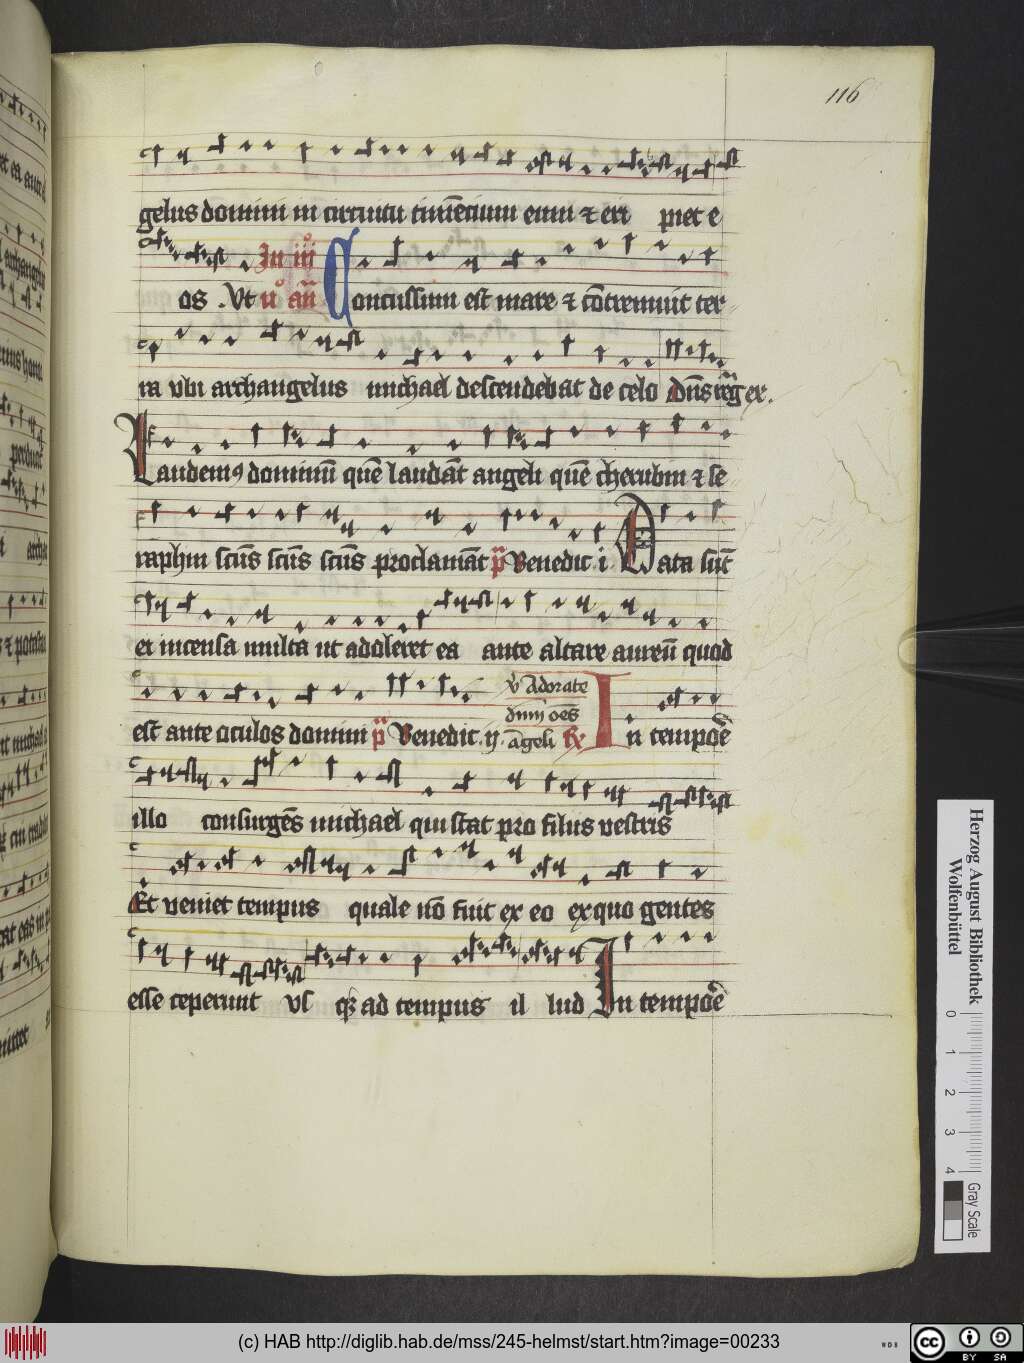 116
gelus domini in circuitu timēcium eum ⁊ eri piet e
os . Vt uᵒ añ In iiiᵒ Concussum est mare ⁊ cōtremuit ter
ra vbi archangelus michael descendebat de celo Dūs reg̃ ex.
Laudemꝰ dominū quē laudāt angeli quē cherubin ⁊ se
raphin scūs scūs scūs proclamāt p̄ Benedic i Data sūt
et incensa multa ut adoleret ea ante altare aureū quod
est ante oculos domini p̄ Benedic ij. ℣ Adorate dnm oēs āgeli ℟ In tempoē
illo consurgēs michael qui stat pro filus vestris
Et veniet tempus quale nō fuit ex eo exquo gentes
esse ceperunt vs qꝫ ad tempus il lud In tempoē
Herzog August Bibliothek
Wolfenbüttel
0 1 2 3 4
Gray Scale
(c) HAB http://diglib.hab.de/mss/245-helmst/start.htm?image=00233
WDB
cc BY SA